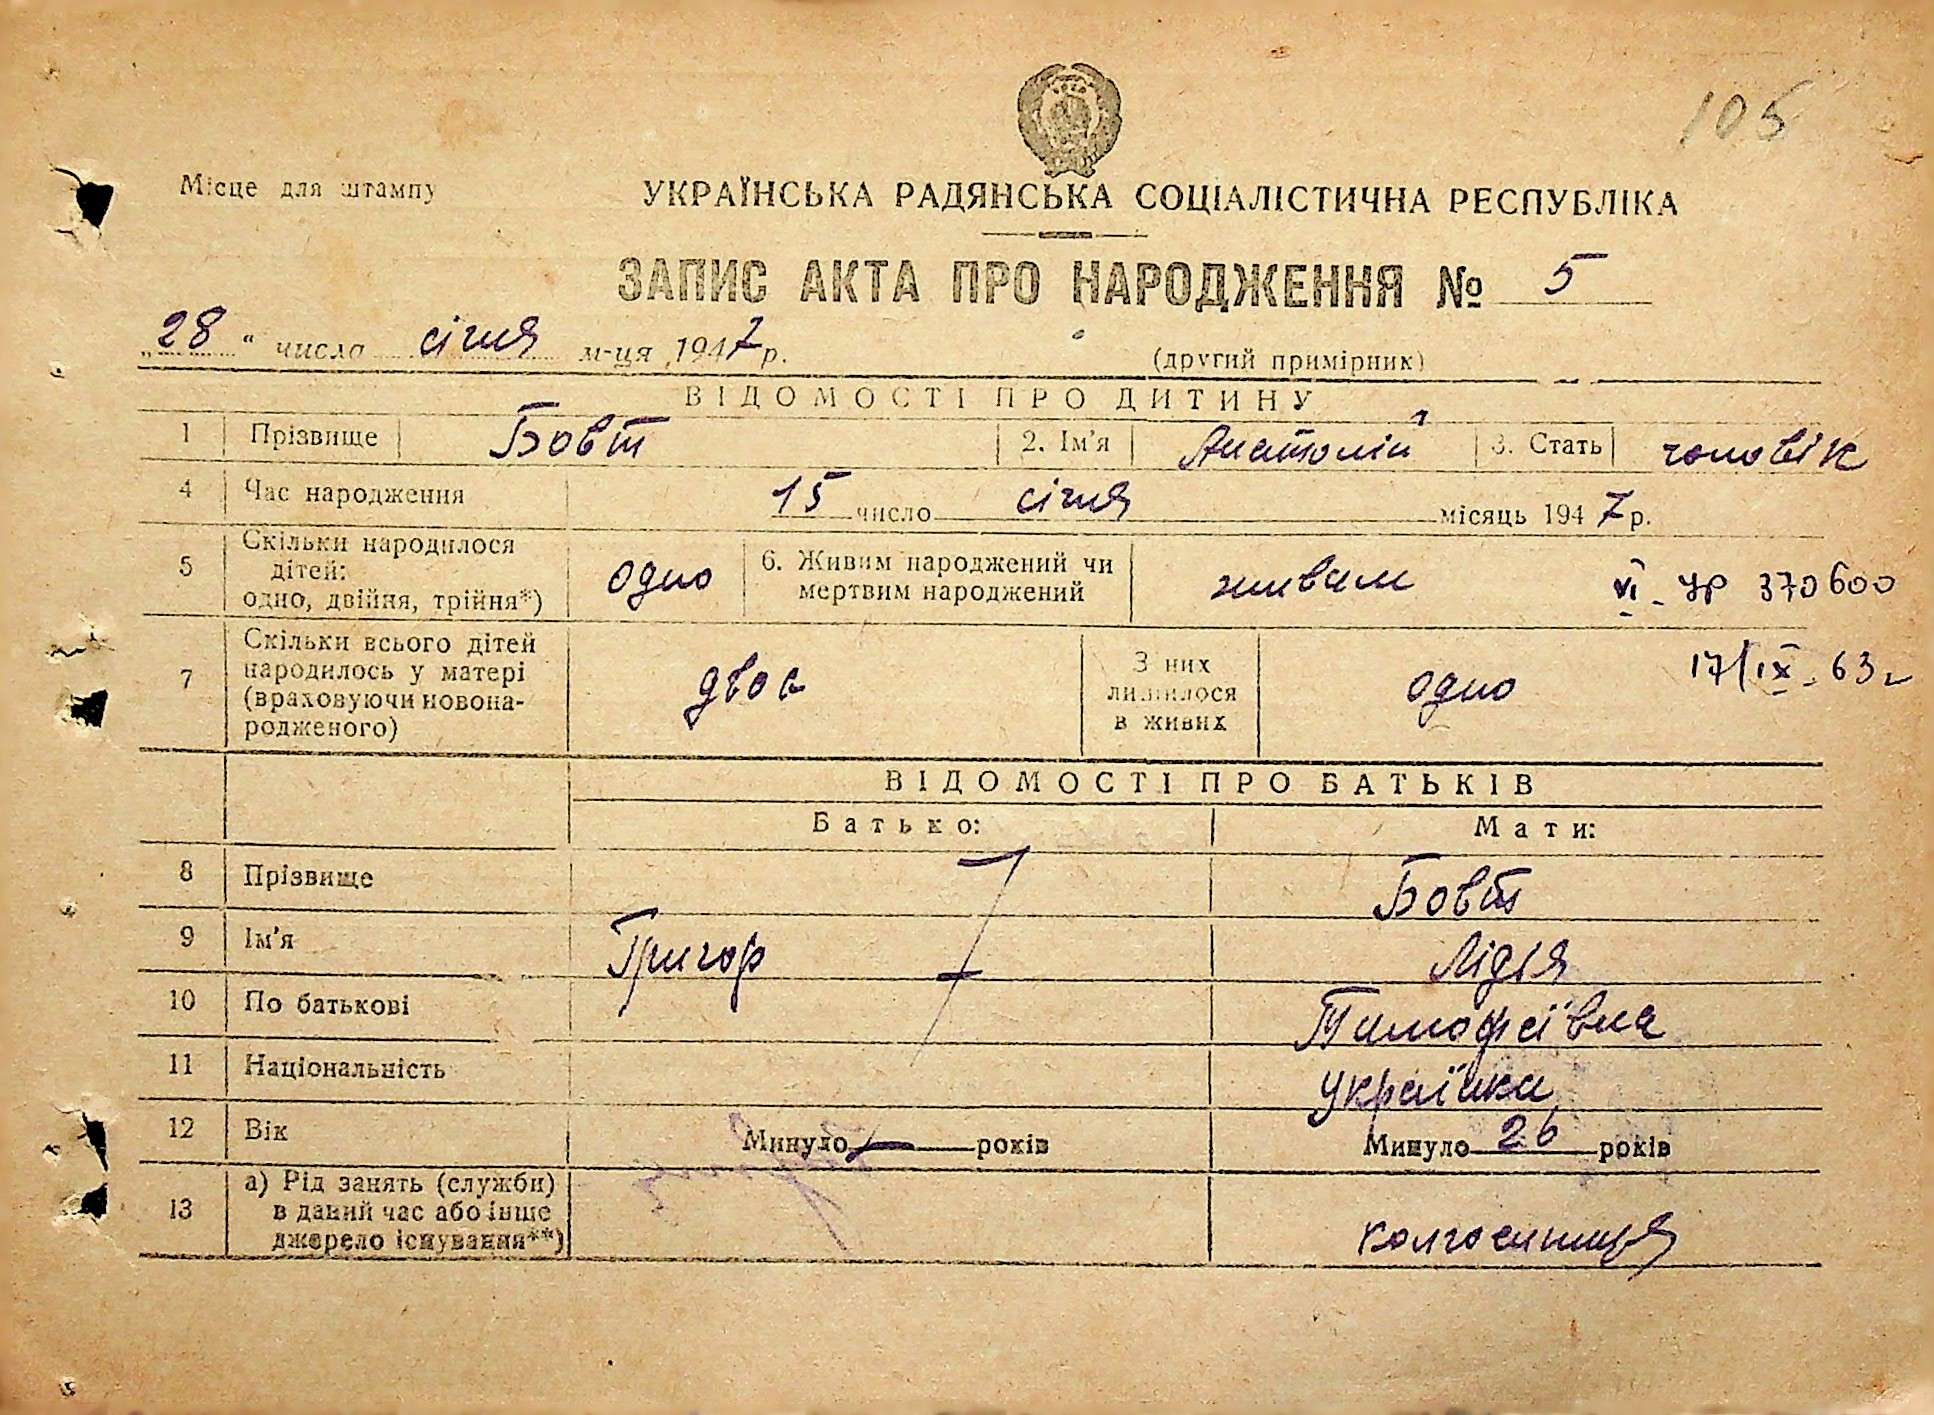 105
Місце для штампу
УКРАЇНСЬКА РАДЯНСЬКА СОЦІАЛІСТИЧНА РЕСПУБЛІКА
ЗАПИС АКТА ПРО НАРОДЖЕННЯ № 5
„28“ числа січня м-ця 1947 р.
(другий примірник)
ВІДОМОСТІ ПРО ДИТИНУ
1 Прізвище Бовт 2. Ім'я Анатолій 3. Стать чоловік
4 Час народження 15 число січня місяць 1947 р.
5 Скільки народилося дітей: одно, двійня, трійня*) одно 6. Живим народжений чи мертвим народжений живим
VI - УР 370600
7 Скільки всього дітей народилось у матері (враховуючи новонародженого) двоє З них лишилося в живих одно
17/IX - 63 г
ВІДОМОСТІ ПРО БАТЬКІВ
Батько: Мати:
8 Прізвище Бовт
9 Ім'я Григор Лідія
10 По батькові Тимофіївна
11 Національність українка
12 Вік Минуло — років Минуло 26 років
13 а) Рід занять (служби) в даний час або інше джерело існування**) колгоспниця